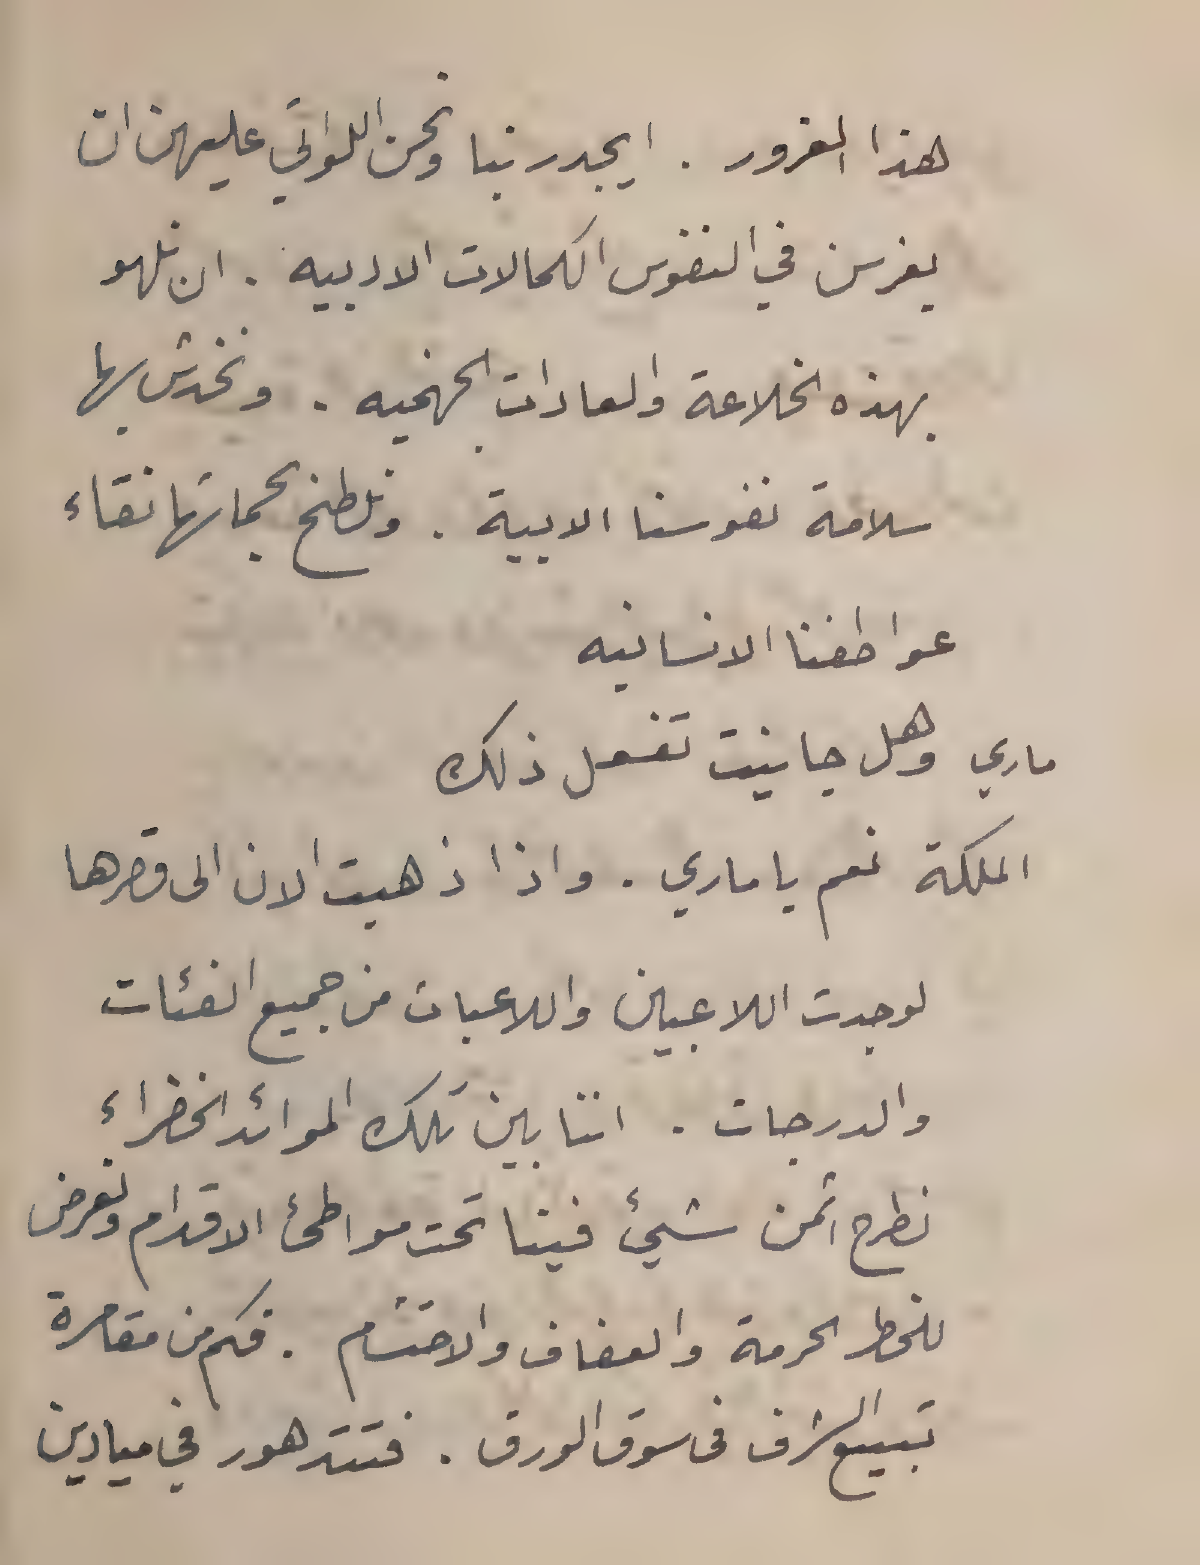 هذا الغرور . ايجدر بنا ونحن اللواتي عليهن ان
يغرسن في النفوس الكمالات الادبيه . ان نلهو
بهذه الخلاعة والعادات الجهنميه . ونخدش بها
سلامة نفوسنا الابية . ونلطخ بحماتها نقاء
عواطفنا الانسانيه
ماري وهل جانيت تفعل ذلك
الملكة نعم يا ماري . واذا ذهبت الان الى قصرها
لوجدت اللاعبين واللاعبات من جميع الفئات
والدرجات . اننا بين تلك الموائد الخضراء
نطرح اثمن شيئ فينا تحت مواطئ الاقدام ونعرض
للخطر الحرمة والعفاف والاحتشام . فكم من مقامرة
تبيع الشرف في سوق الورق . فتتدهور في ميادين